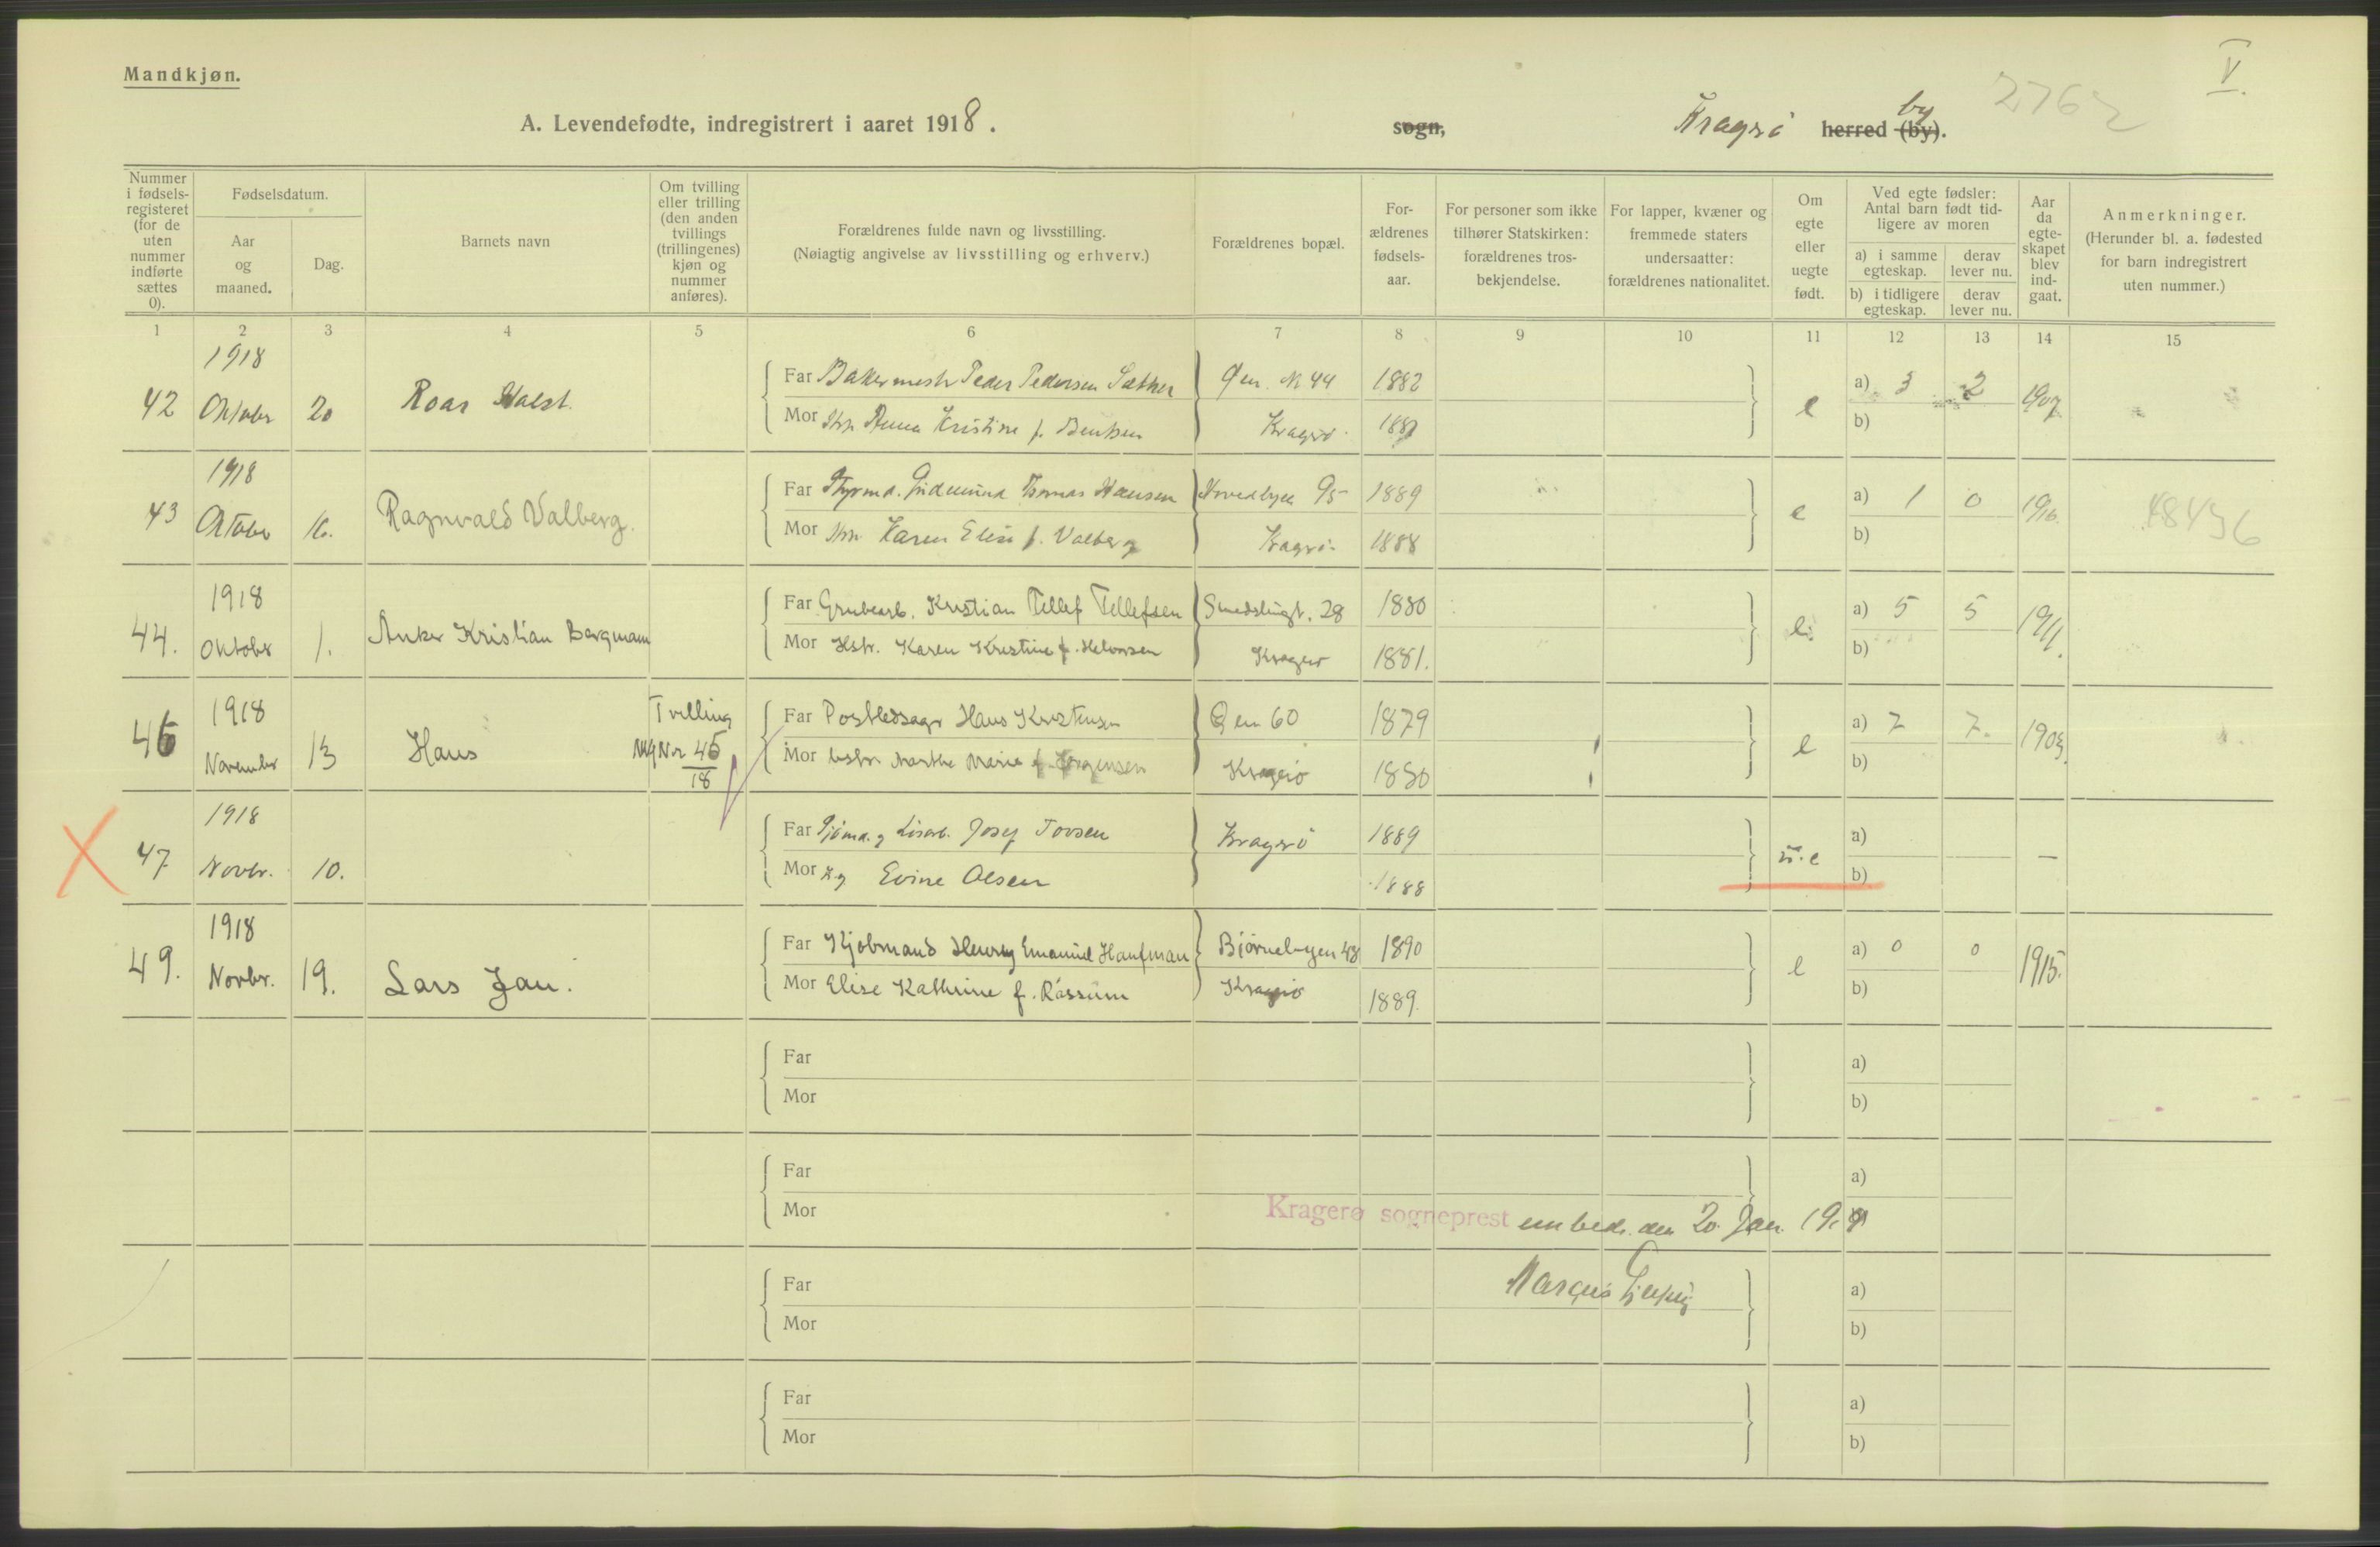 Mandkjøn.
V.
2762
A. Levendefødte, indregistrert i aaret 1918.
sogn, Kragerø herred (by). by
Nummer i fødsels-registeret (for de uten nummer indførte sættes 0).
Fødselsdatum.
Aar og maaned.
Dag.
Barnets navn
Om tvilling eller trilling (den anden tvillings (trillingenes) kjøn og nummer anføres).
Forældrenes fulde navn og livsstilling.
(Nøiagtig angivelse av livsstilling og erhverv.)
Forældrenes bopæl.
For-ældrenes fødsels-aar.
For personer som ikke tilhører Statskirken: forældrenes tros-bekjendelse.
For lapper, kvæner og fremmede staters undersaatter: forældrenes nationalitet.
Om egte eller uegte født.
Ved egte fødsler: Antal barn født tid-ligere av moren
a) i samme egteskap.
derav lever nu.
b) i tidligere egteskap.
derav lever nu.
Aar da egte-skapet blev ind-gaat.
Anmerkninger.
(Herunder bl. a. fødested for barn indregistrert uten nummer.)
1 2 3 4 5 6 7 8 9 10 11 12 13 14 15
1918
42 Oktober 20 Roar
Far Bakermestr Peder Pedersen Sæther Øen. N 44 1882
Mor Anna Kristine f. Bentsen Kragerø
e a) 3 2 1907
b)
1918
43 Oktober 16. Ragnvald Valberg.
Far Tomas Hansen 95 1889
Mor Karen Elise f. Valberg Kragerø 1888
e a) 1 0 1916.
b)
48436
1918
44. Oktober 1. Anker Kristian Bergmann
Far Grubearb. Kristian Tellef Tellefsen 28 1880
Mor Hstr. Karen Kristine f. Halvorsen Kragerø 1881.
e. a) 5 5 1911.
b)
1918
46 November 13 Hans Tvilling Nr 45
18
Far Postledsager Hans Kristensen Øen 60 1879
Mor Marthe Marie f. Jørgensen Kragerø 1880
e a) 7 7. 1903.
b)
1918
47 Novbr. 10.
Far Josef Tovsen Kragerø 1889
Mor Evine Olsen 1888
u.e a) —
b)
1918
49. Novbr. 19. Lars Jan.
Far Kjøbmand Henry Emanuel Haufman 48 1890
Mor Elise Kathrine f. Rassum Kragerø 1889.
e a) 0 0 1915.
b)
Far a)
Mor b)
Far a)
Mor
Kragerø sogneprest embede den 20 Jan. 1919
Far a)
Mor b)
Far a)
Mor b)